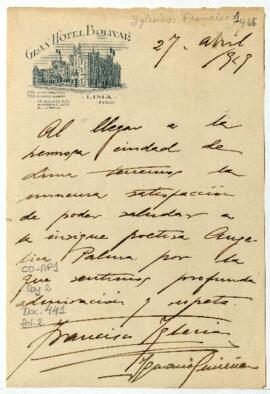 Yglesias, Francisco 1
GRAN HOTEL BOLIVAR
- LIMA -
PERÚ
27 - abril
1929
Al llegar a la
hermosa ciudad de
Lima tenemos la
inmensa satisfacción
de poder saludar a
la insigne poetisa Ange-
lica Palma por la
que sentimos profunda
admiración y respeto.
Francisco Yglesias
Ygnacio
CO-AP1
Caj 2
Doc. 441
fol. 2